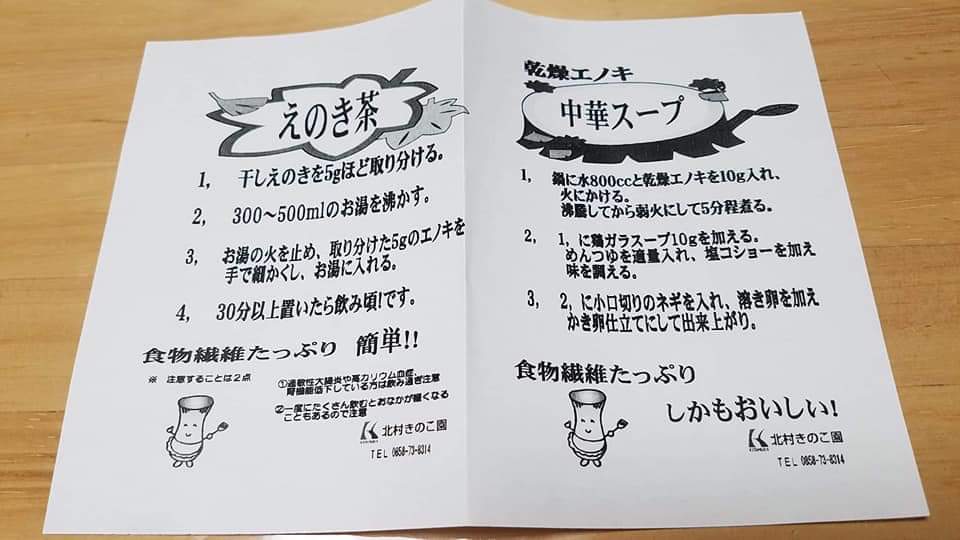 えのき茶
1, 干しえのきを5gほど取り分ける。
2, 300～500mlのお湯を沸かす。
3, お湯の火を止め、取り分けた5gのエノキを
手で細かくし、お湯に入れる。
4, 30分以上置いたら飲み頃!です。
食物繊維たっぷり 簡単!!
※ 注意することは2点
①過敏性大腸炎や高カリウム血症、
腎機能低下している方は飲み過ぎ注意
②一度にたくさん飲むとおなかが緩くなる
こともあるので注意
北村きのこ園
TEL 0858-73-8314
乾燥エノキ
中華スープ
1, 鍋に水800ccと乾燥エノキを10g入れ、
火にかける。
沸騰してから弱火にして5分程煮る。
2, 1, に鶏ガラスープ10gを加える。
めんつゆを適量入れ、塩コショーを加え
味を調える。
3, 2, に小口切りのネギを入れ、溶き卵を加え
かき卵仕立てにして出来上がり。
食物繊維たっぷり
しかもおいしい!
北村きのこ園
TEL 0858-73-8314